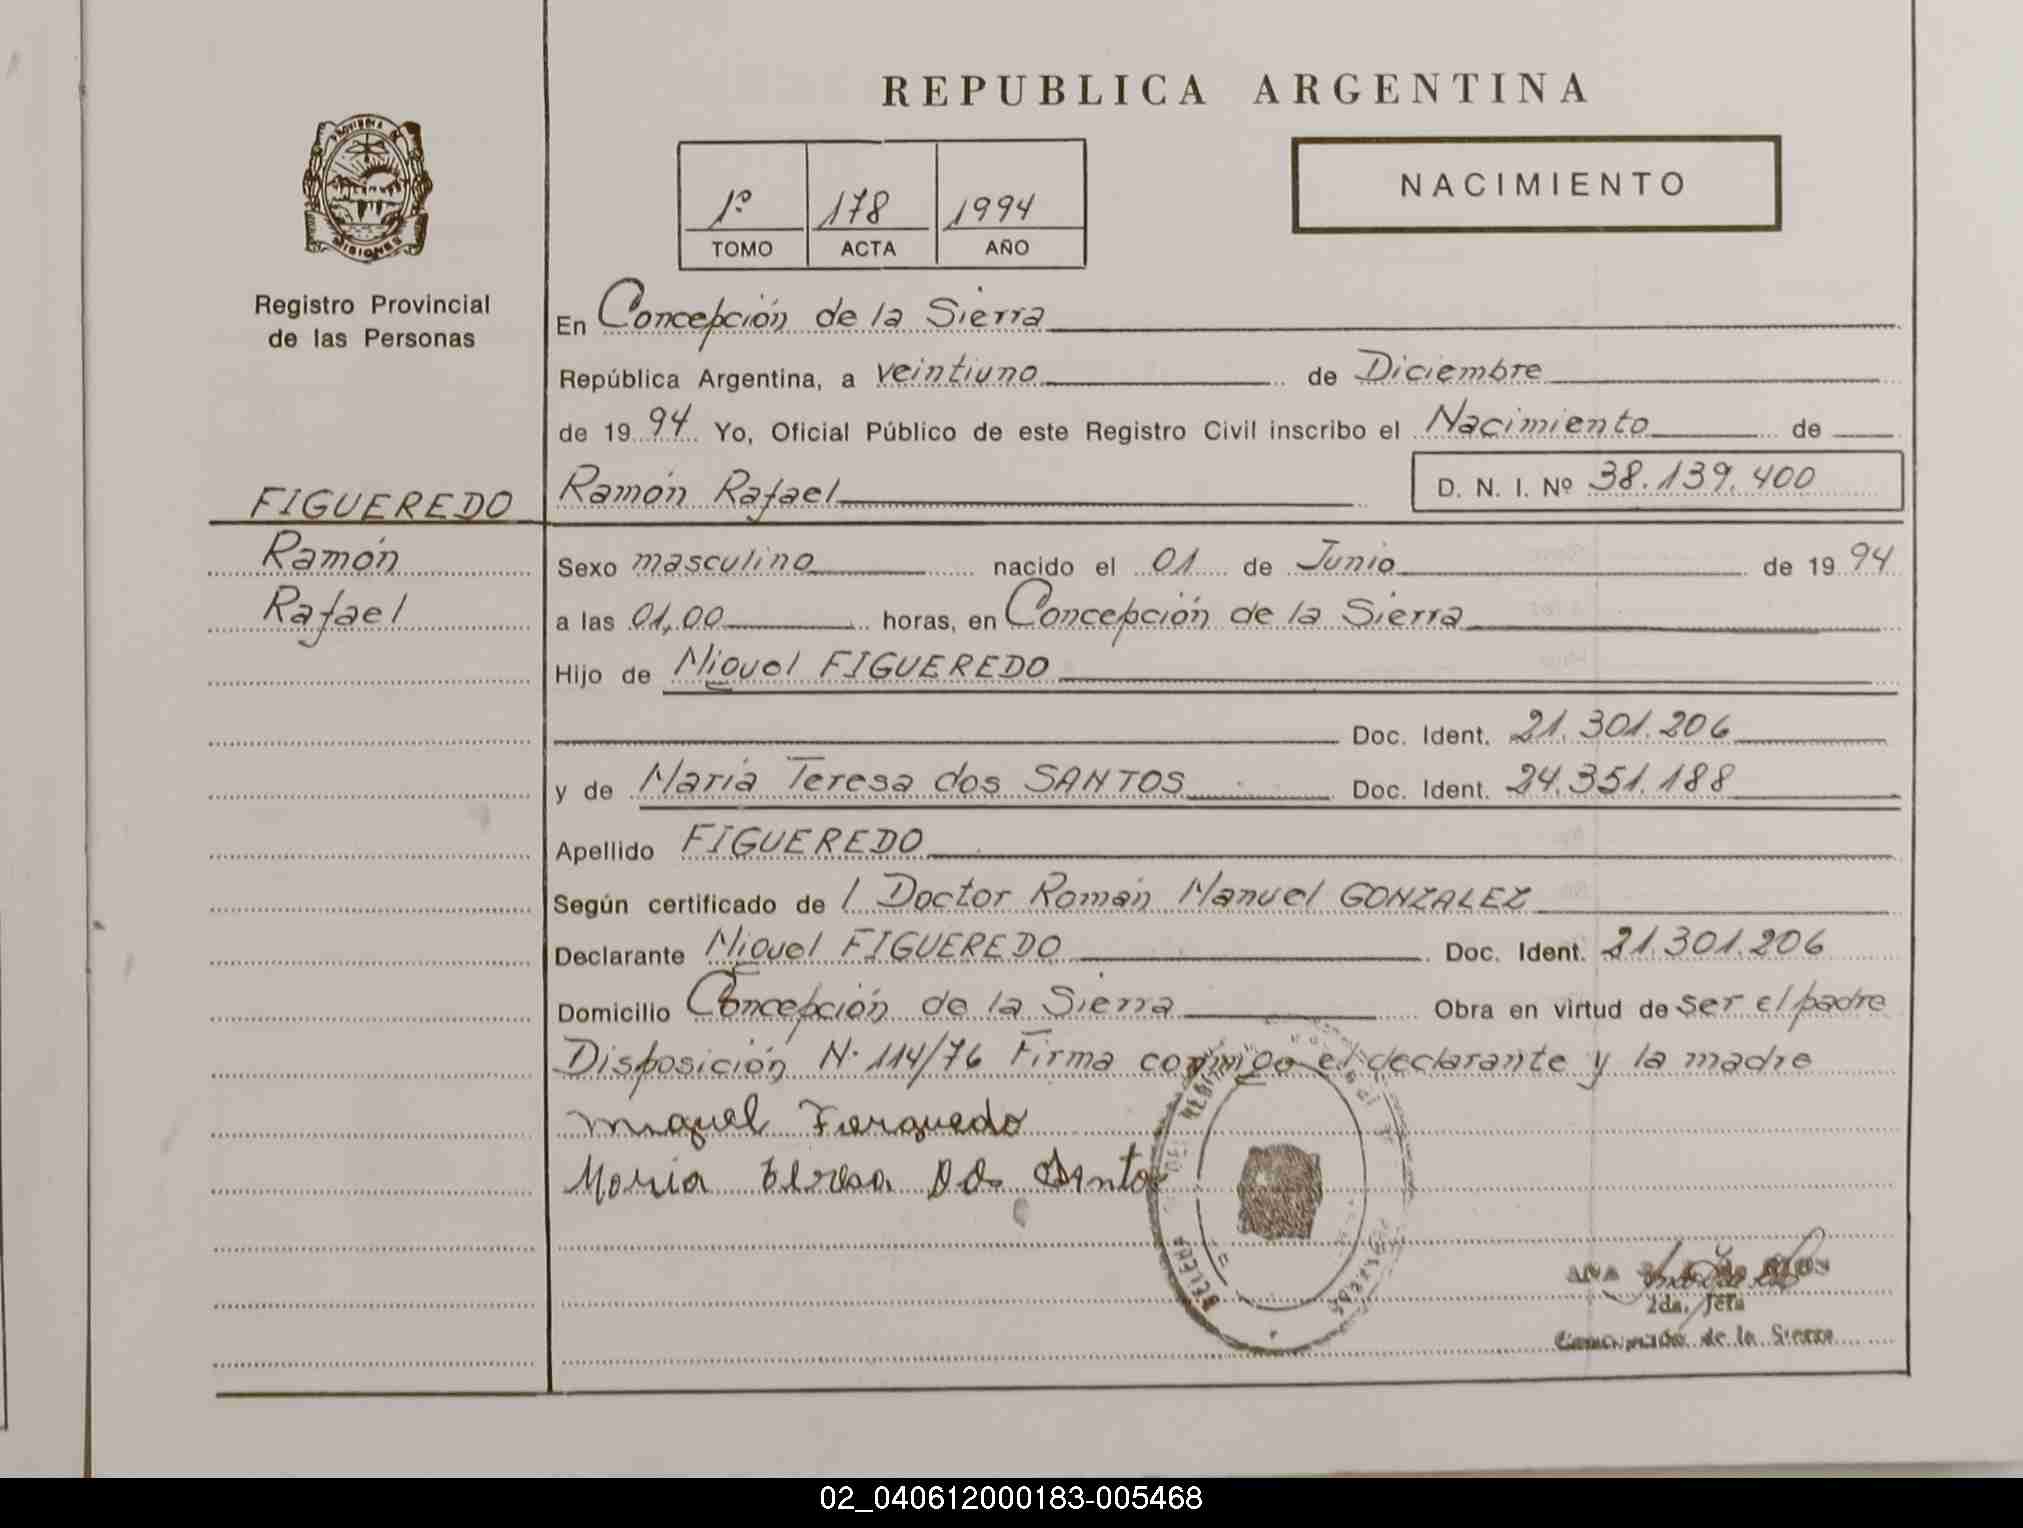 REPUBLICA ARGENTINA
PROVINCIA DE
MISIONES
Registro Provincial
de las Personas
1º 178 1994
TOMO ACTA AÑO
NACIMIENTO
En Concepción de la Sierra
República Argentina, a veintiuno de Diciembre
de 1994 Yo, Oficial Público de este Registro Civil inscribo el Nacimiento de
FIGUEREDO
Ramón
Rafael
Ramón Rafael D. N. I. Nº 38.139.400
Sexo masculino nacido el 01 de Junio de 1994
a las 01,00 horas, en Concepción de la Sierra
Hijo de Miguel FIGUEREDO
Doc. Ident. 21.301.206
y de María Teresa dos SANTOS Doc. Ident. 24.351.188
Apellido FIGUEREDO
Según certificado de l Doctor Román Manuel GONZALEZ
Declarante Miguel FIGUEREDO Doc. Ident. 21.301.206
Domicilio Concepción de la Sierra Obra en virtud de ser el padre
Disposición N· 114/76 Firma conmigo el declarante y la madre
Miquel
Maria
ANA
2da. Jefa
de la Sierra
02_040612000183-005468